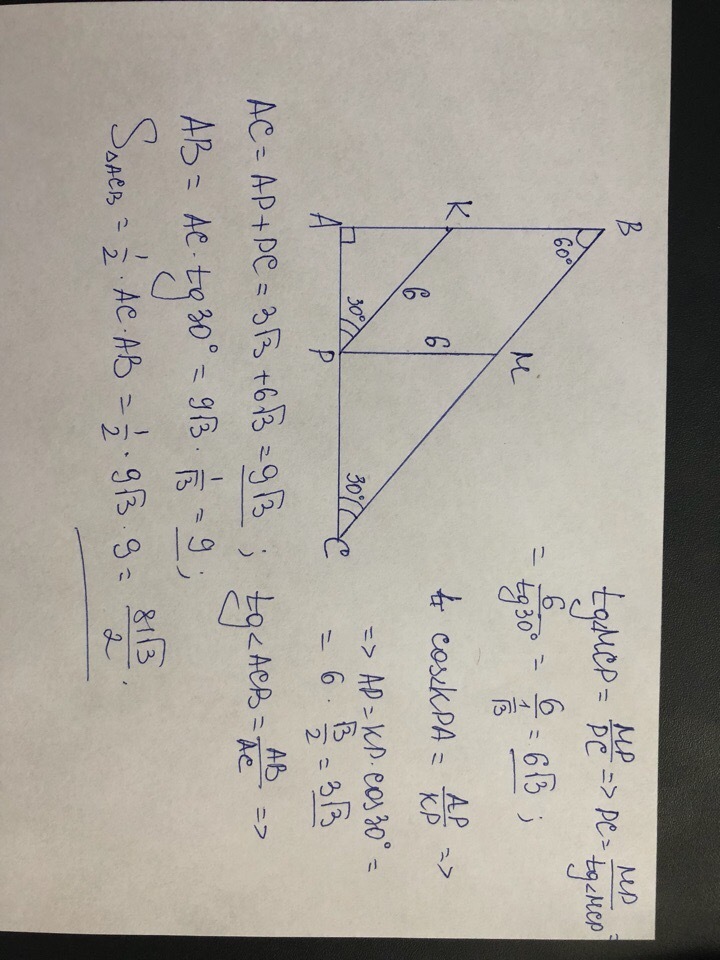 B
60°
K
M
6
6
30°
30°
A
P
C
tg∠MCP = MP/PC => PC = MP/tg∠MCP =
= 6/tg30° = 6/(1/√3) = 6√3 ;
cos∠KPA = AP/KP =>
=> AP = KP·cos30° =
= 6 · √3/2 = 3√3
AC = AP + PC = 3√3 + 6√3 = 9√3 ; tg∠ACB = AB/AC =>
AB = AC·tg30° = 9√3 · 1/√3 = 9 ;
S△ACB = 1/2 · AC · AB = 1/2 · 9√3 · 9 = 81√3/2 .